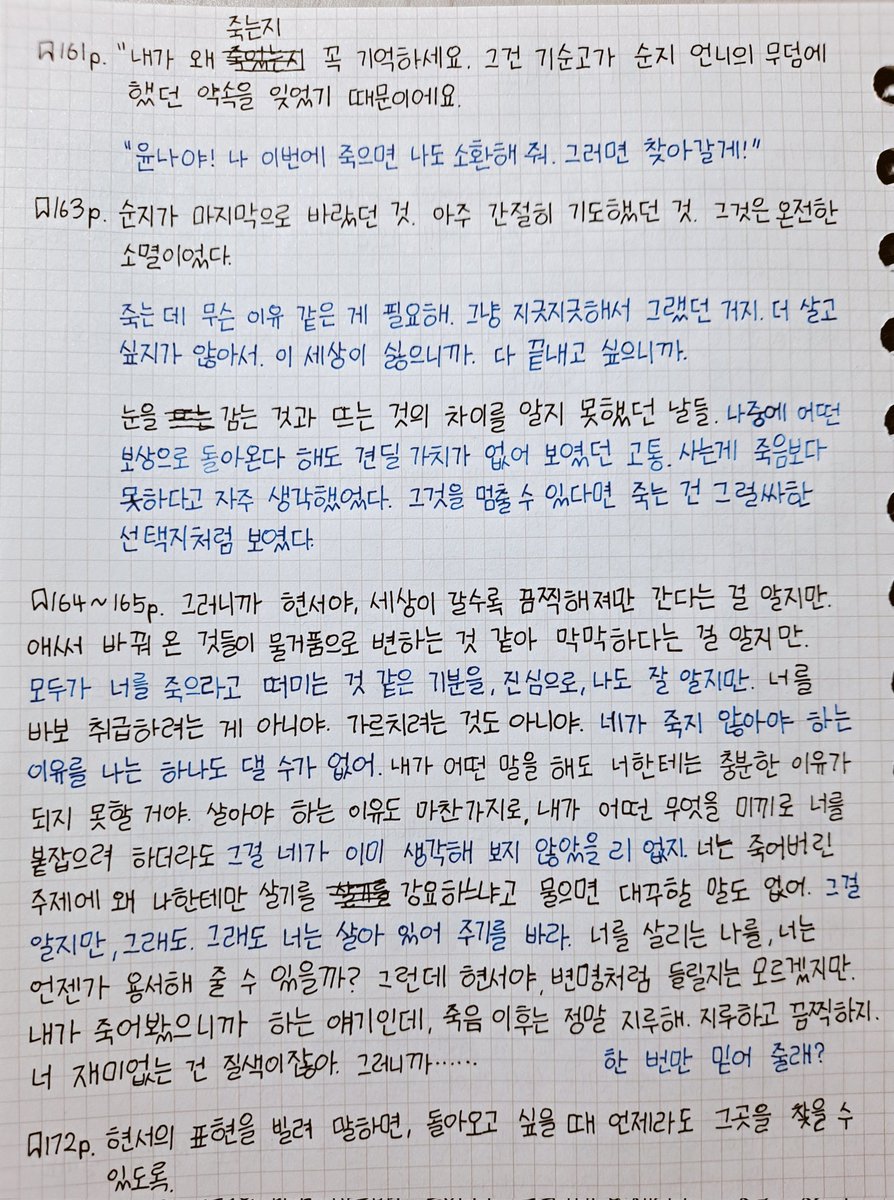 죽는지
161p. "내가 왜 죽었는지 꼭 기억하세요. 그건 기순고가 순지 언니의 무덤에
했던 약속을 잊었기 때문이에요.
"윤나야! 나 이번에 죽으면 나도 소환해 줘. 그러면 찾아갈게!"
163p. 순지가 마지막으로 바랐던 것. 아주 간절히 기도했던 것. 그것은 온전한
소멸이었다.
죽는 데 무슨 이유 같은 게 필요해. 그냥 지긋지긋해서 그랬던 거지. 더 살고
싶지가 않아서. 이 세상이 싫으니까. 다 끝내고 싶으니까.
눈을 뜨는 감는 것과 뜨는 것의 차이를 알지 못했던 날들. 나중에 어떤
보상으로 돌아온다 해도 견딜 가치가 없어 보였던 고통. 사는게 죽음보다
못하다고 자주 생각했었다. 그것을 멈출 수 있다면 죽는 건 그럴싸한
선택지처럼 보였다.
164~165p. 그러니까 현서야, 세상이 갈수록 끔찍해져만 간다는 걸 알지만.
애써서 바꿔 온 것들이 물거품으로 변하는 것 같아 막막하다는 걸 알지만.
모두가 너를 죽으라고 떠미는 것 같은 기분을, 진심으로, 나도 잘 알지만. 너를
바보 취급하려는 게 아니야. 가르치려는 것도 아니야. 네가 죽지 않아야 하는
이유를 나는 하나도 댈 수가 없어. 내가 어떤 말을 해도 너한테는 충분한 이유가
되지 못할 거야. 살아야 하는 이유도 마찬가지로, 내가 어떤 무엇을 미끼로 너를
붙잡으려 하더라도 그걸 네가 이미 생각해 보지 않았을 리 없지. 너는 죽어버린
주제에 왜 나한테만 살기를 강요하느냐고 물으면 대꾸할 말도 없어. 그걸
알지만, 그래도. 그래도 너는 살아 있어 주기를 바라. 너를 살리는 나를, 너는
언젠가 용서해 줄 수 있을까? 그런데 현서야, 변명처럼 들릴지는 모르겠지만.
내가 죽어봤으니까 하는 얘기인데, 죽음 이후는 정말 지루해. 지루하고 끔찍하지.
너 재미없는 건 질색이잖아. 그러니까…… 한 번만 믿어 줄래?
172p. 현서의 표현을 빌려 말하면, 돌아오고 싶을 때 언제라도 그곳을 찾을 수
있도록.